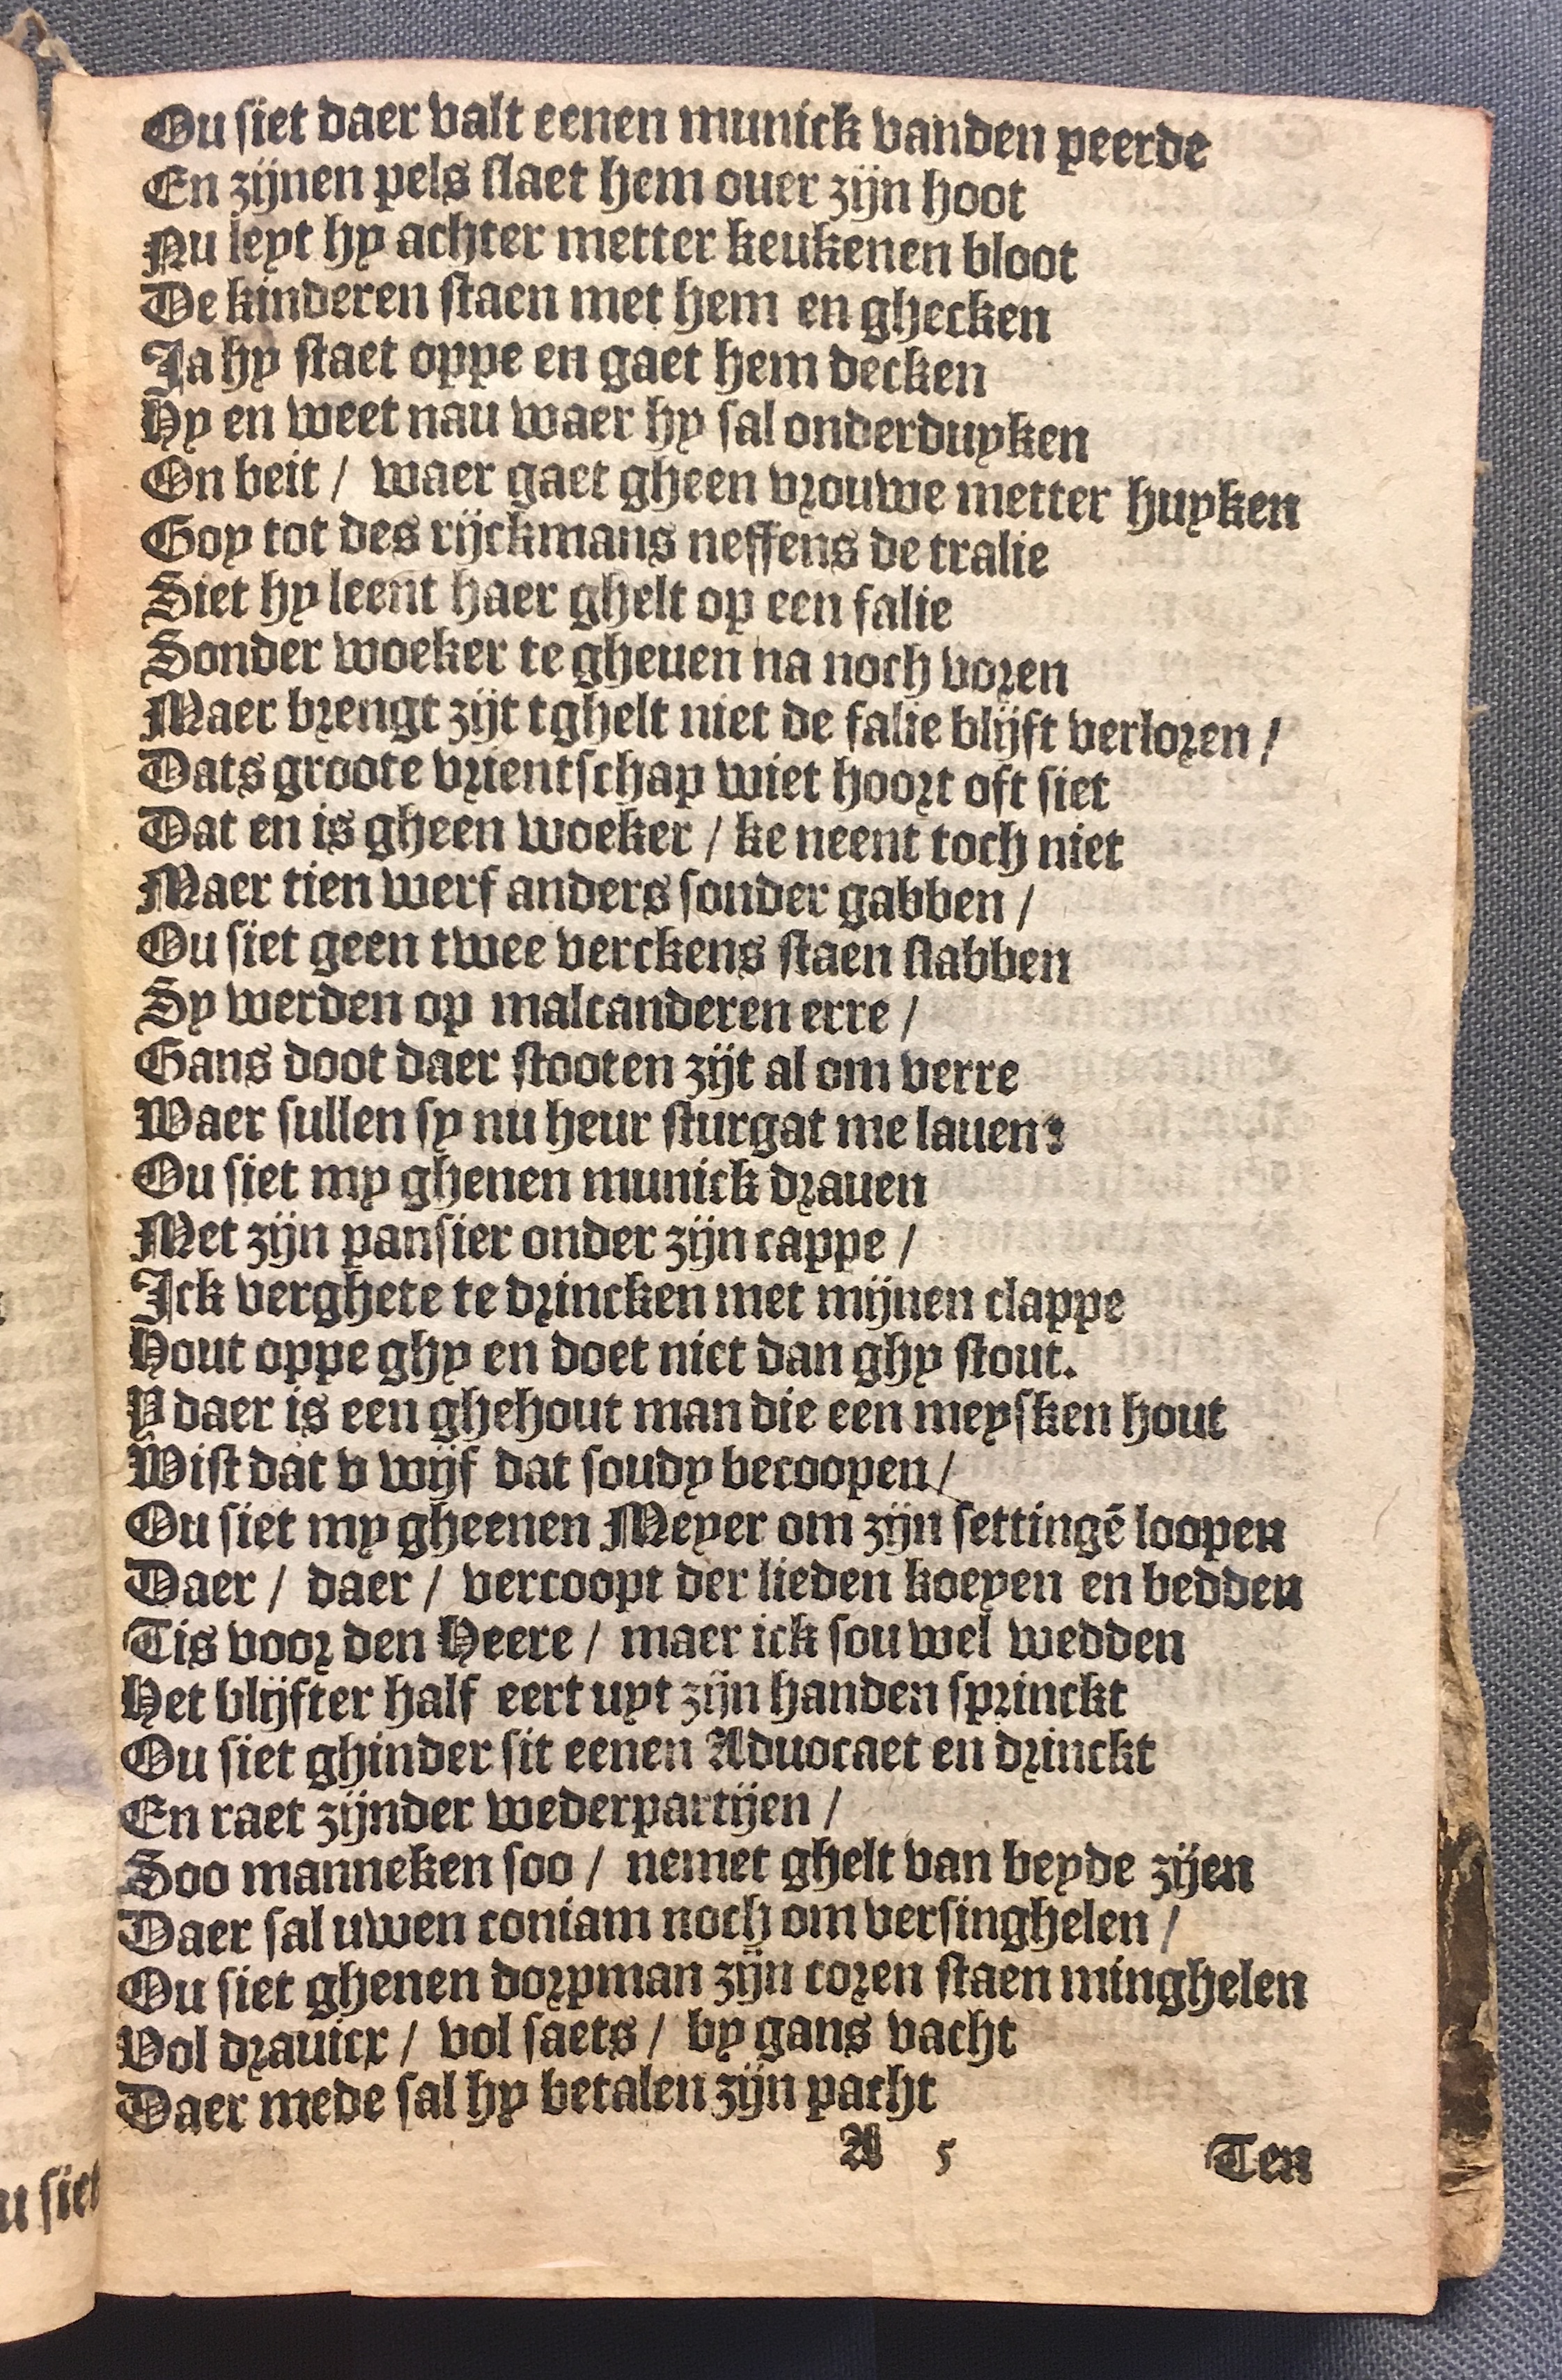 Ou siet daer valt eenen munick vanden peerde
En zijnen pels slaet hem ouer zijn hoot
Nu leyt hy achter metter keukenen bloot
De kinderen staen met hem en ghecken
Ja hy staet oppe en gaet hem decken
Hy en weet nau waer hy sal onderduyken
On beit / waer gaet gheen vrouwe metter huyken
Goy tot des rijckmans neffens de tralie
Siet hy leent haer ghelt op een falie
Sonder woeker te gheuen na noch voren
Maer brengt zijt tghelt niet de falie blijft verloren /
Dats groote vrientschap wiet hoort oft siet
Dat en is gheen woeker / ke neent toch niet
Maer tien werf anders sonder gabben /
Ou siet geen twee verckens staen slabben
Sy werden op malcanderen erre /
Gans doot daer stooten zijt al om verre
Waer sullen sy nu heur sturgat me lauen?
Ou siet my ghenen munick drauen
Met zijn pansier onder zijn cappe /
Ick verghete te drincken met mijnen clappe
Hout oppe ghy en doet niet dan ghy stout.
Y daer is een ghehout man die een meysken hout
Wist dat v wijf dat soudy becoopen /
Ou siet my gheenen Meyer om zijn settingē loopen
Daer / daer / vercoopt der lieden koeyen en bedden
Tis voor den Heere / maer ick sou wel wedden
Het blijfter half eert uyt zijn handen sprinckt
Ou siet ghinder sit eenen Aduocaet en drinckt
En raet zijnder wederpartijen /
Soo manneken soo / nemet ghelt van beyde zijen
Daer sal uwen coniam noch om versinghelen /
Ou siet ghenen dorpman zijn coren staen minghelen
Vol drauicx / vol saets / by gans vacht
Daer mede sal hy betalen zijn pacht
A 5 Ten
u siet